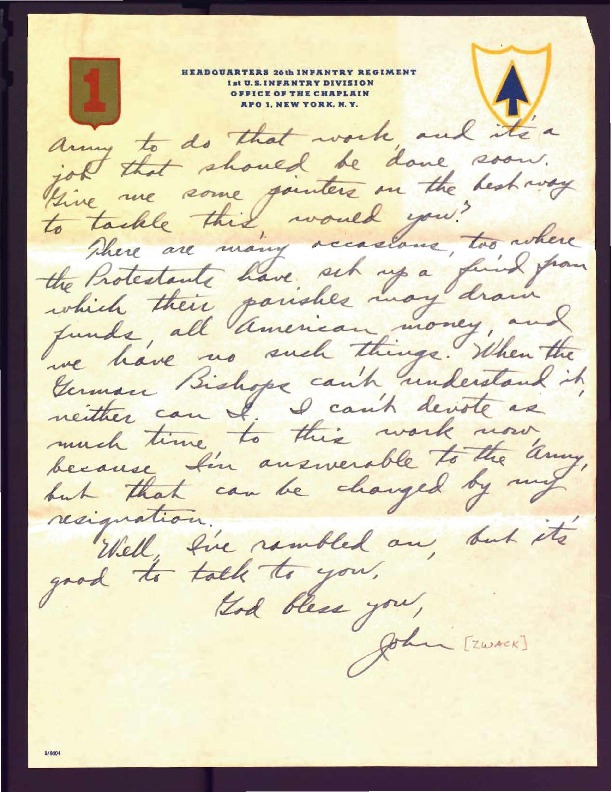 1
HEADQUARTERS 26th INFANTRY REGIMENT
1st U.S. INFANTRY DIVISION
OFFICE OF THE CHAPLAIN
APO 1, NEW YORK, N.Y.
Army to do that work, and it's a
job that should be done soon.
Give me some pointers on the best way
to tackle this would you?
There are many occasions, too where
the Protestants have set up a fund from
which their parishes may draw
funds, all American money, and
we have no such things. When the
German Bishops can't understand it,
neither can I. I can't devote as
much time to this work now,
because I'm answerable to the Army,
but that can be changed by my
resignation.
Well, I've rambled on, but it's
good to talk to you.
God bless you,
John [ZWACK]